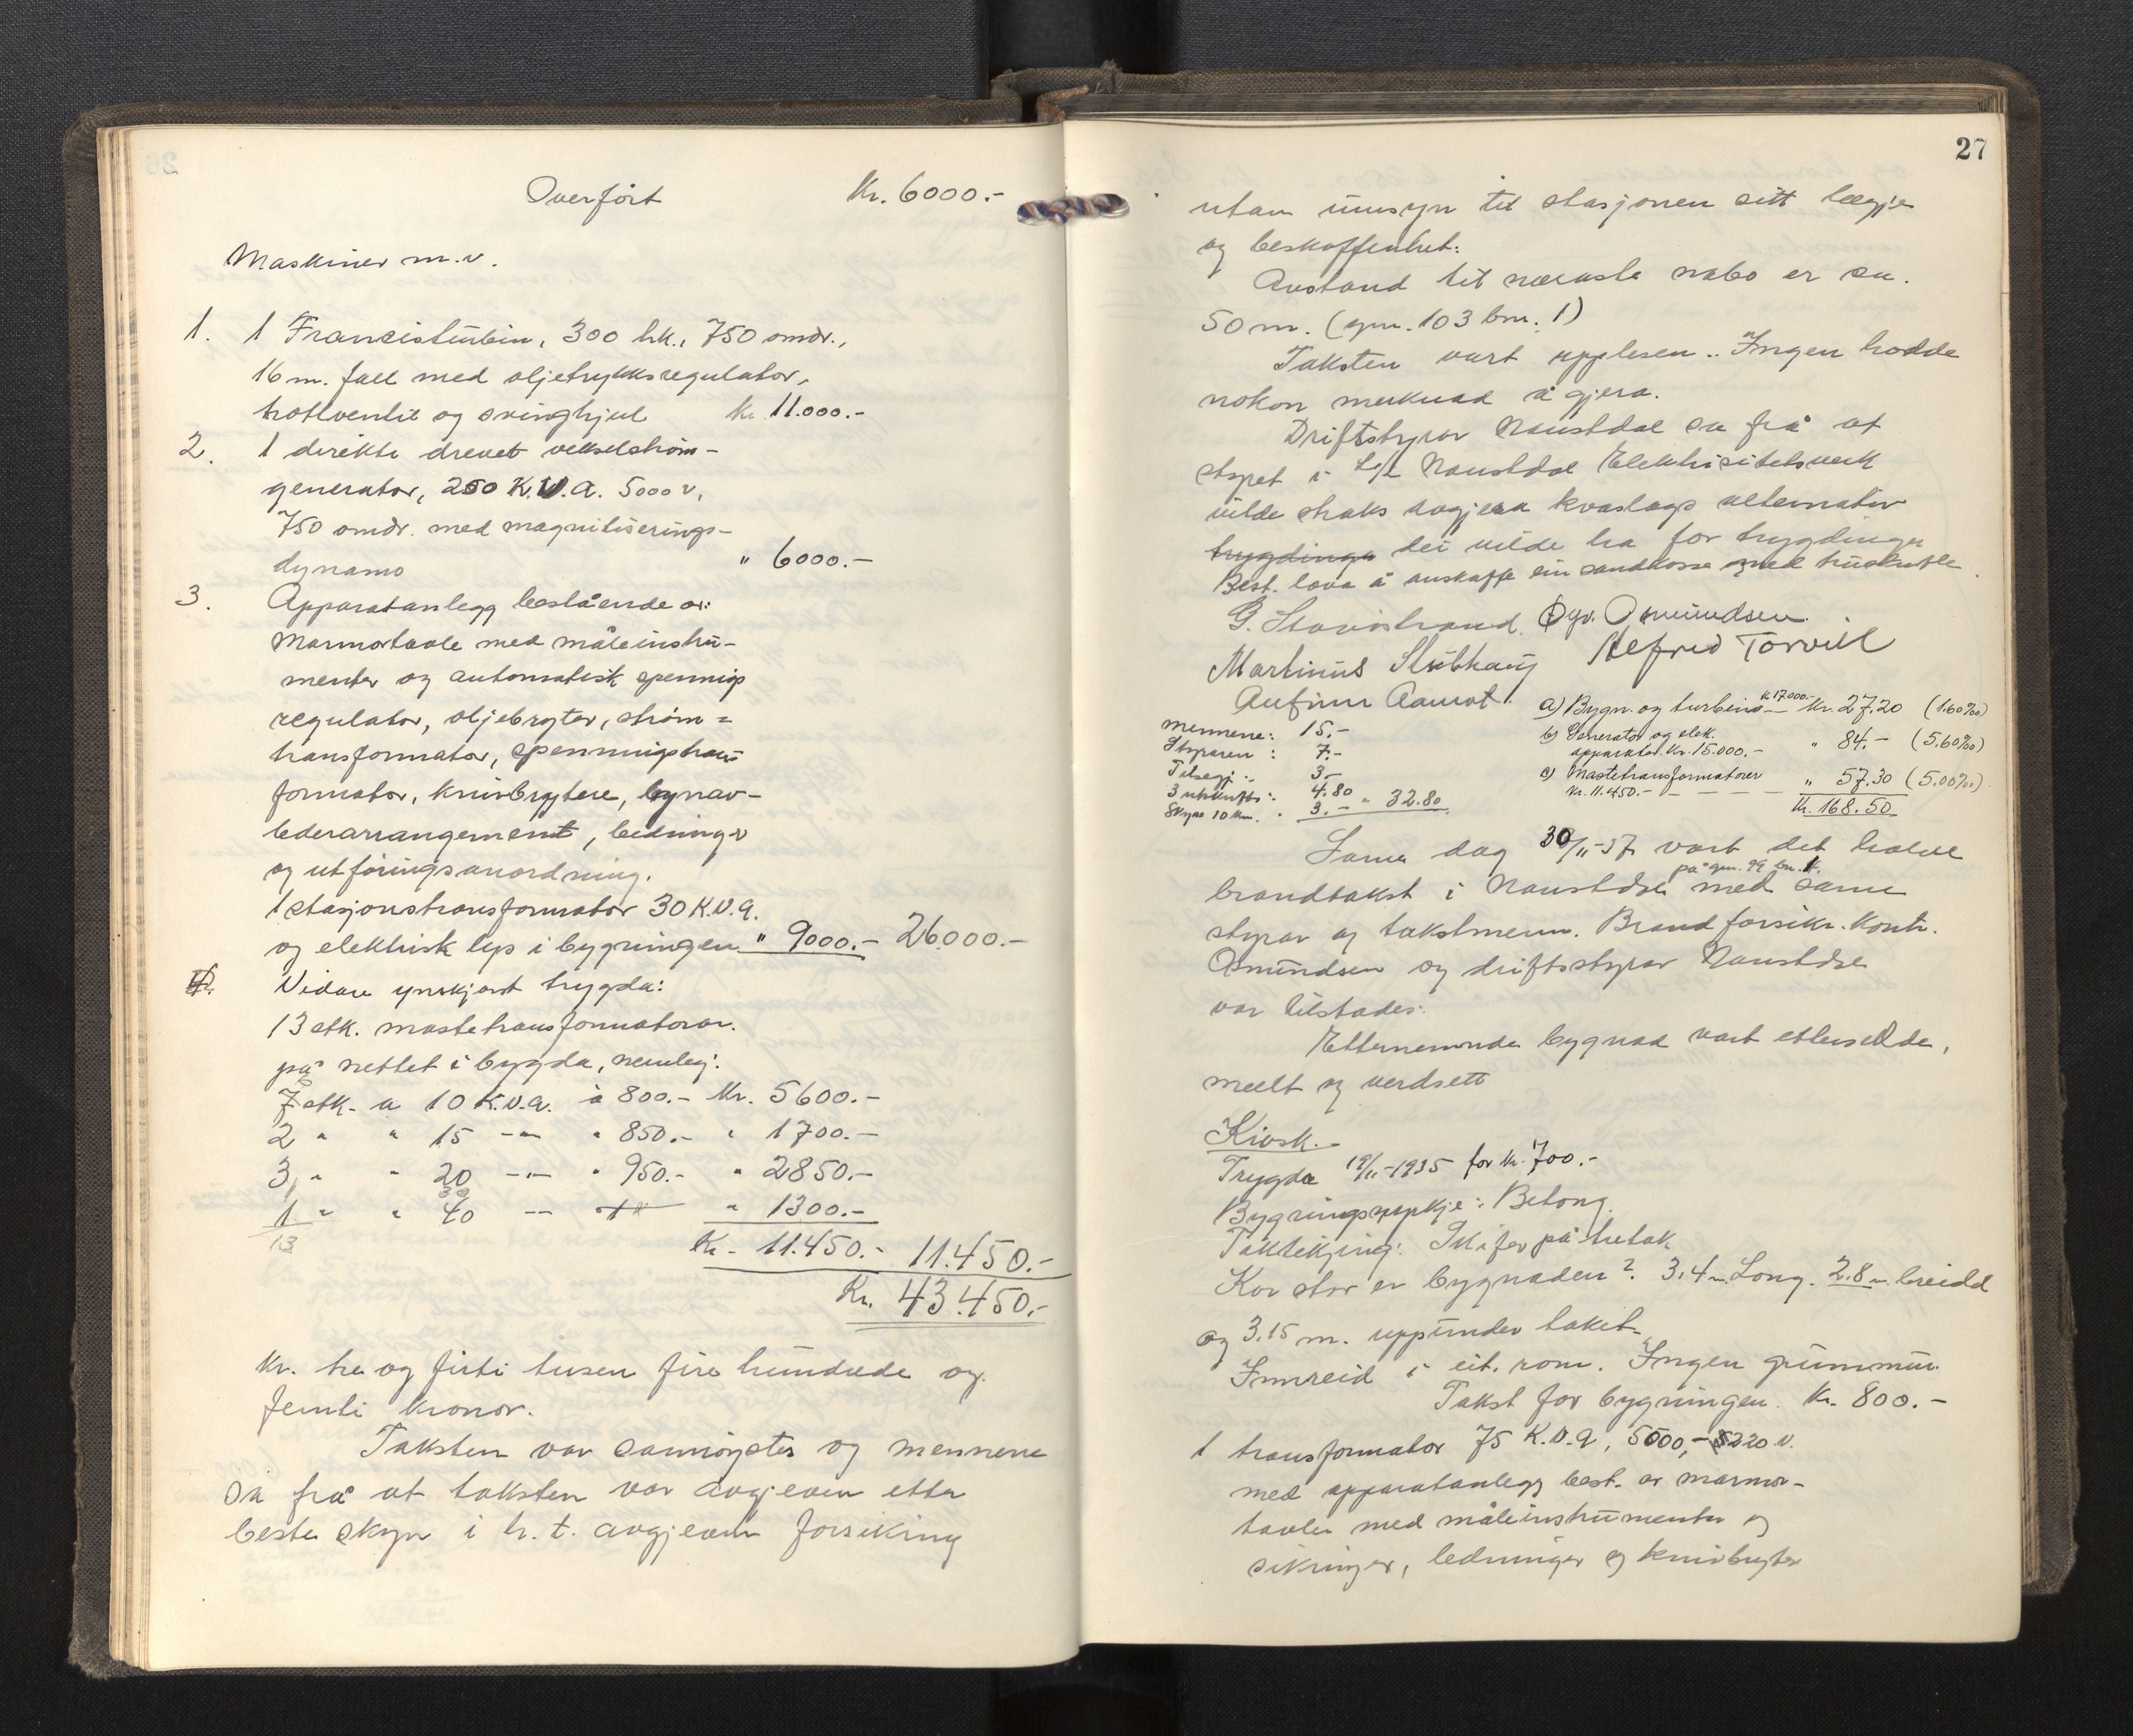 Overført Kr. 6000.-
Maskiner m.v.
1. 1 Francisturbin, 300 hk., 750 omdr.,
16 m. fall med oljetrykksregulator,
hottventil og svinghjul Kr. 11.000.-
2. 1 direkte drevet vekselstrøm-
generator, 250 K.V.A. 5000 v,
750 omdr. med magnitiserings-
dynamo " 6000.-
3. Apparatanlegg bestående av:
Marmortavle med måleinstru-
menter og automatisk spennings
regulator, oljebryter, strøm=
transformator, spenningstrans=
formator, knivbrytere, lynav-
lederarrangement, ledninger
og utføringsanordning.
1 stasjonstransformator 30 K.V.A.
og elektrisk lys i bygningen " 9000.- 26000.-
Vidare ynskjest trygda:
13 stk. mastetransformatorar.
på nettet i bygda, nemleg:
7 stk. a 10 K.V.A. à 800.- Kr. 5600.-
2 " " 15 -"- " 850.- " 1700.-
3 " " 20 -"- " 950.- " 2850.-
1 " " 40 -"- " 1300.-
13
Kr. 11.450.- 11.450.-
Kr. 43.450.-
Kr. tre og firti tusen fire hundrede og
femti kronor.
Taksten var samrøystes og mennene
sa frå at taksten var avgjeven etter
beste skyn i h.t. avgjeven forsikring
27
utan umsyn til stasjonen sitt lægje
og beskaffenhet.
Avstand til næraste nabo er ca.
50 m. (gnr. 103 bnr. 1)
Taksten vart upplesen. Ingen hadde
nokon merknad å gjera.
Driftstyrar Naustdal sa frå at
styret i L/L Naustdal Elektrisitetsverk
vilde straks avgjera kvaslags alternativ
trygdinga dei vilde ha for trygdingen
Best. lova å anskaffe ein sandkasse med truskuffe.
G. Stavøstrand. Øyv. Osmundsen.
Martinus Stubhaug Alfred Torvill
Anfinn Aamot.
mennene: 15.-
Styraren: 7.-
Tilsegj.: 3.-
3 utskrifter: 4.80
Skyss 10 km. " 3.- " 32.80
a) Bygn. og turbin Kr. 17.000.- Kr. 27.20 (1.60‰)
b) Generator og elek.
apparater Kr. 15.000.- " 84.- (5.60‰)
c) Mastetransformatorer " 57.30 (5.00‰)
Kr. 11.450.-
Kr. 168.50
Same dag 30/11-37 vart det halde
på gnr. 99 bnr. 1.
brandtakst i Naustdal med same
styrar og takstmenn. Brandforsikr. Kontr.
Osmundsen og driftsstyrar Naustdal
var tilstades.
Etternemnde bygnad vart ettersedde,
mælt og verdsett
Kiosk.-
Trygda 19/11-1935 for Kr. 700.-
Bygningsyrkje: Betong.
Taktekjing: Skifer på tretak
Kor stor er bygnaden? 3,4 m. Long. 2.8 m. breidd
og 3.15 m. uppunder taket.
Innreid i eit rom. Ingen grunnmur.
Takst for bygningen. Kr. 800.-
1 transformator 75 K.V.A, 5000,- 220 v.
med apparatanlegg best. av marmor-
tavler med måleinstrumenter og
sikringer, ledninger og knivbryter